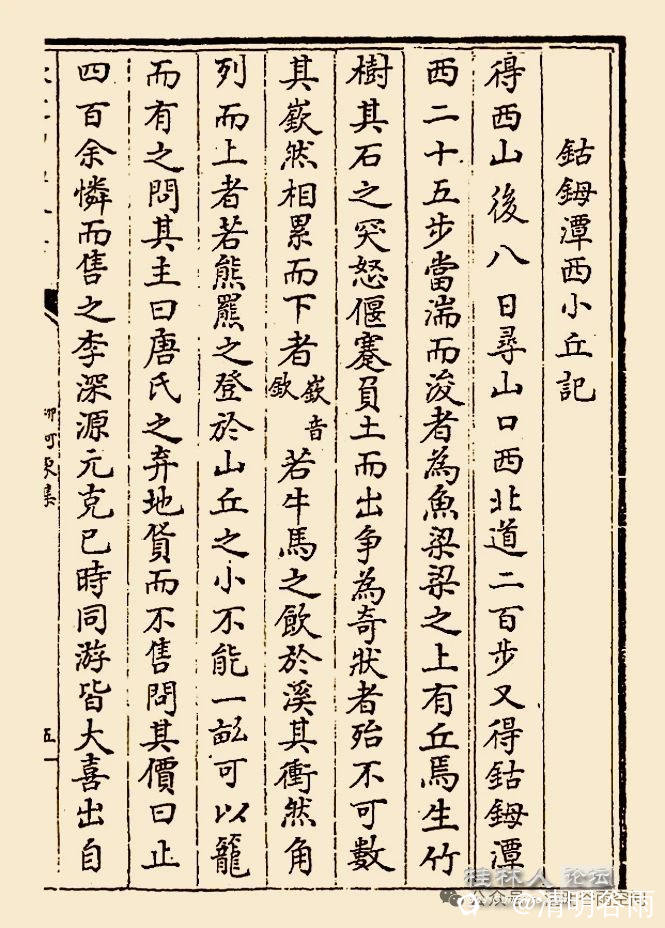 鈷鉧潭西小丘記
得西山後八日尋山口西北道二百步又得鈷鉧潭
西二十五步當湍而浚者為魚梁梁之上有丘焉生竹
樹其石之突怒偃蹇負土而出争為奇狀者殆不可數
其嶔然相累而下者嶔音欽若牛馬之飲於溪其衝然角
列而上者若熊羆之登於山丘之小不能一畝可以籠
而有之問其主曰唐氏之弃地貨而不售問其價曰止
四百余憐而售之李深源元克已時同游皆大喜出自
五
桂林人论坛
公众号
@清明谷雨